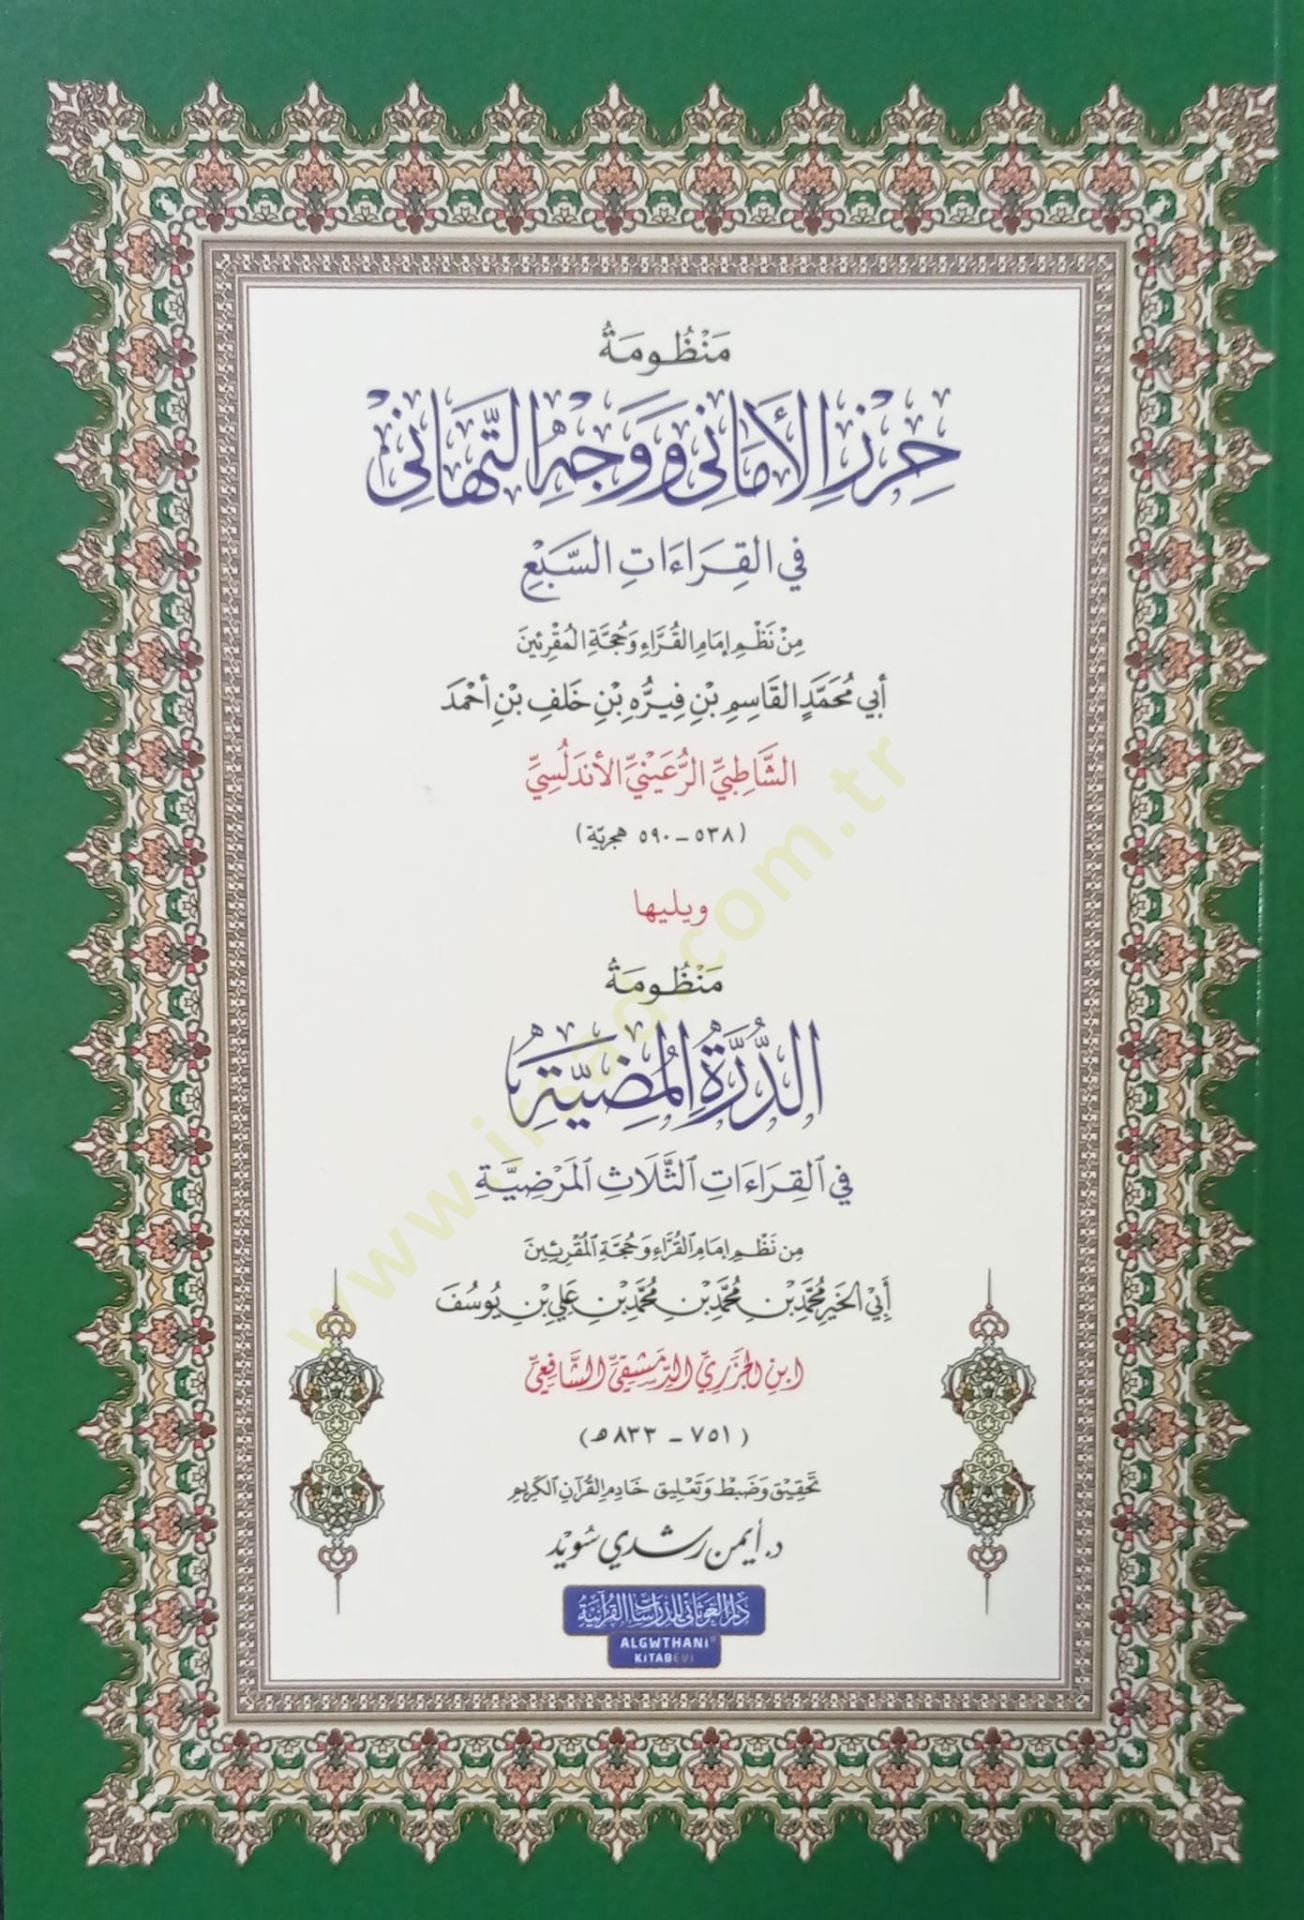 مَنْظُومَةُ
حِرْزِ الْأَمَانِي وَوَجْهِ التَّهَانِي
فِي القِرَاءَاتِ السَّبْعِ
مِنْ نَظْمِ إِمَامِ القُرَّاءِ وَحُجَّةِ المُقْرِئِينَ
أبي مُحَمَّدٍ القَاسِمِ بْنِ فِيرُّه بْنِ خَلَفِ بْنِ أحْمَدَ
الشَّاطِبِيِّ الرُّعَيْنِيِّ الأندَلُسِيِّ
(٥٣٨ - ٥٩٠ هجريّة)
ويليها
مَنْظُومَةُ
الدُّرَّةُ المُضِيَّةُ
فِي القِرَاءَاتِ الثَّلَاثِ المَرْضِيَّةِ
مِن نَظْمِ إمَامِ القُرَّاءِ وَحُجَّةِ المُقْرِئِينَ
أَبِي الخَيْرِ مُحَمَّدِ بْنِ مُحَمَّدِ بْنِ مُحَمَّدِ بْنِ عَلِيِ بْنِ يُوسُفَ
ابنِ الجَزَرِيِّ الدِّمَشْقِيِّ الشَّافِعِيِّ
(٧٥١ - ٨٣٣ هـ)
تَحْقِيق وَضَبْط وَتَعْلِيق خَادِمِ القُرْآنِ الكَرِيمِ
د. أيمن رشدي سُوَيْد
دَارُ الغَوْثَانِي لِلدِّرَاسَاتِ القُرْآنِيَّةِ
ALGWTHANI®
KITABEVI
www.irsad.com.tr